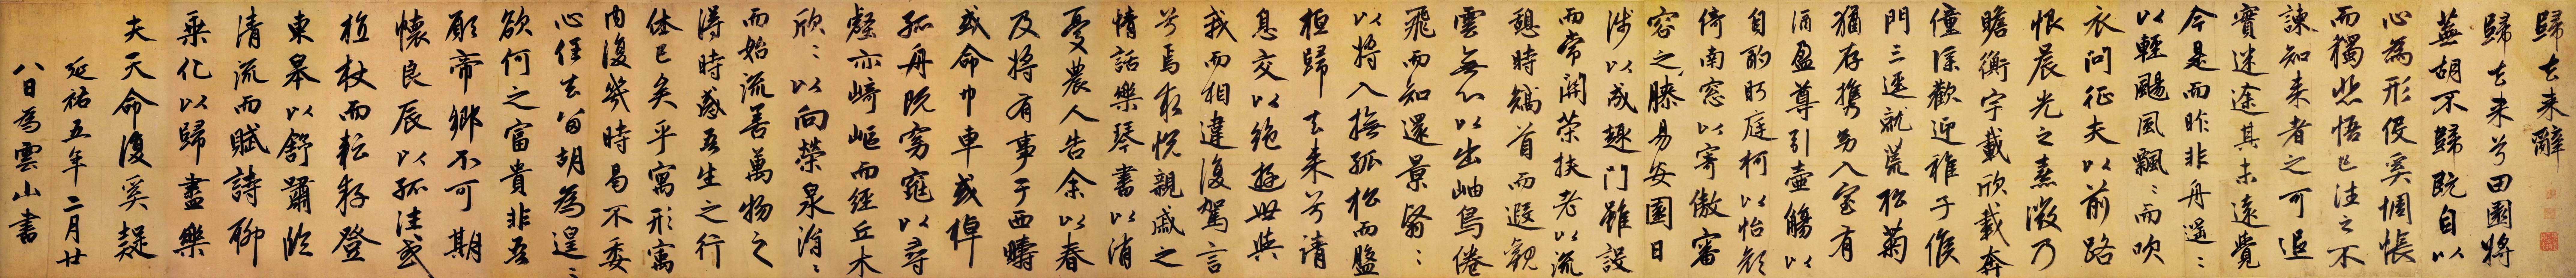 歸去来辭
歸去来兮田園將
蕪胡不歸既自以
心為形役奚惆悵
而獨悲悟已往之不
諫知来者之可追
實迷途其未遠覺
今是而昨非舟遥〻
以輕颺風飄〻而吹
衣問征夫以前路
恨晨光之熹微乃
瞻衡宇載欣載奔
僮僕歡迎稚子候
門三逕就荒松菊
猶存攜幼入室有
酒盈尊引壺觴以
自酌眄庭柯以怡顏
倚南窓以寄傲審
容之膝易安園日
涉以成趣門雖設
而常關策扶老以流
憩時矯首而遐觀
雲無心以出岫鳥倦
飛而知還景翳〻
以將入撫孤松而盤
桓歸去来兮請
息交以絶遊世與
我而相違復駕言
兮焉求悦親戚之
情話樂琴書以消
憂農人告余以春
及將有事于西疇
或命巾車或棹
孤舟既窈窕以尋
壑亦崎嶇而經丘木
欣〻以向榮泉涓〻
而始流善萬物之
得時感吾生之行
休已矣乎寓形寓
内復幾時曷不委
心任去留胡為遑〻
欲何之富貴非吾
願帝鄉不可期
懷良辰以孤往或
植杖而耘耔登
東皋以舒嘯臨
清流而賦詩聊
乘化以歸盡樂
夫天命復奚疑
延祐五年二月廿
八日為雲山書